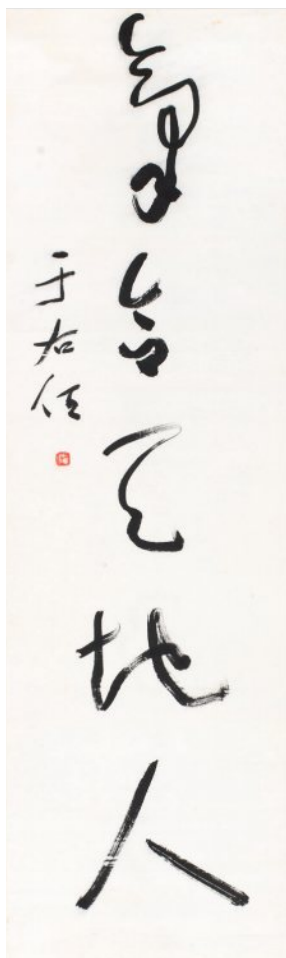 氣合天地人
于右任